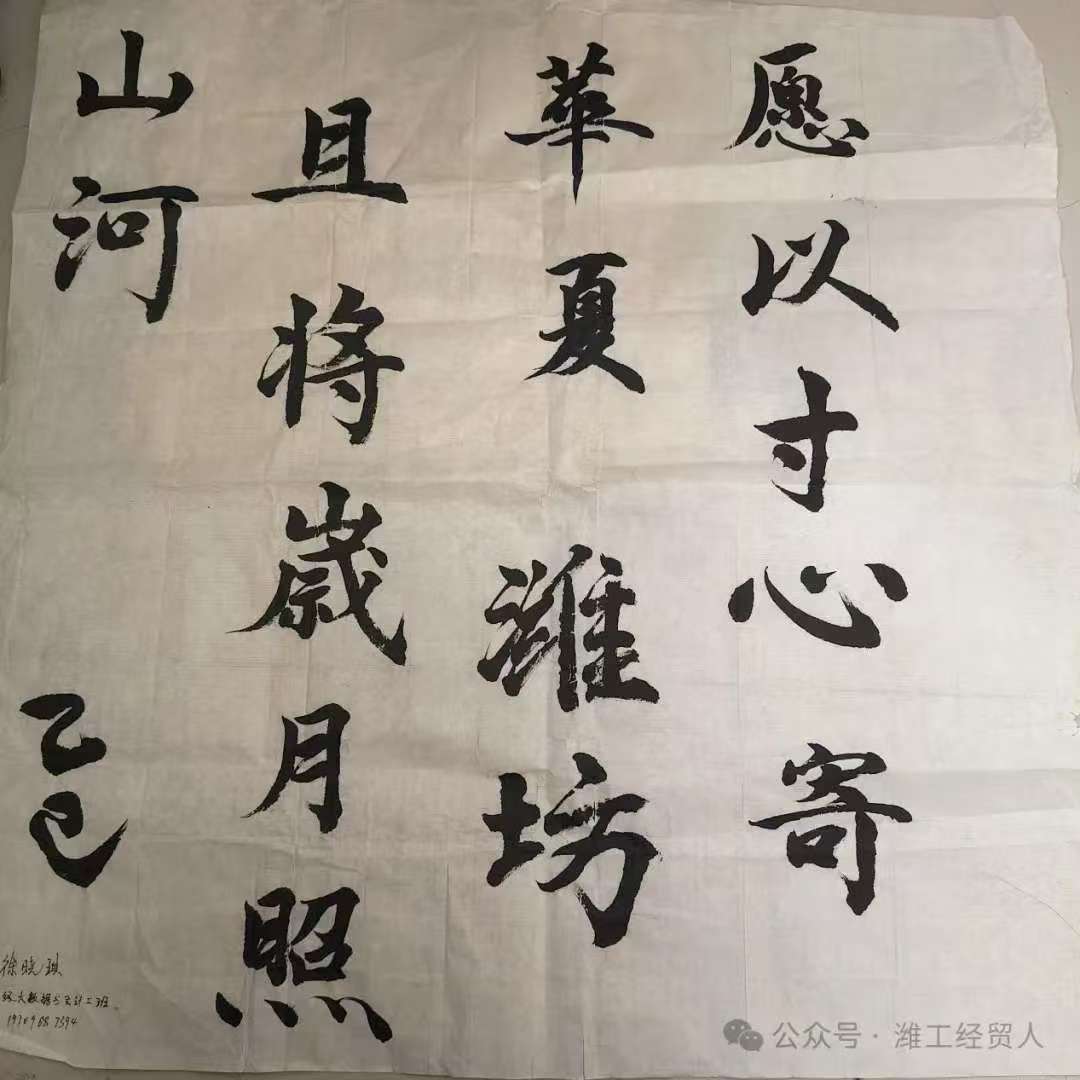 愿以寸心寄
華夏潍坊
且将歳月照
山河
乙巳
徐晓琪
级大数据与会计二班
公众号·潍工经贸人